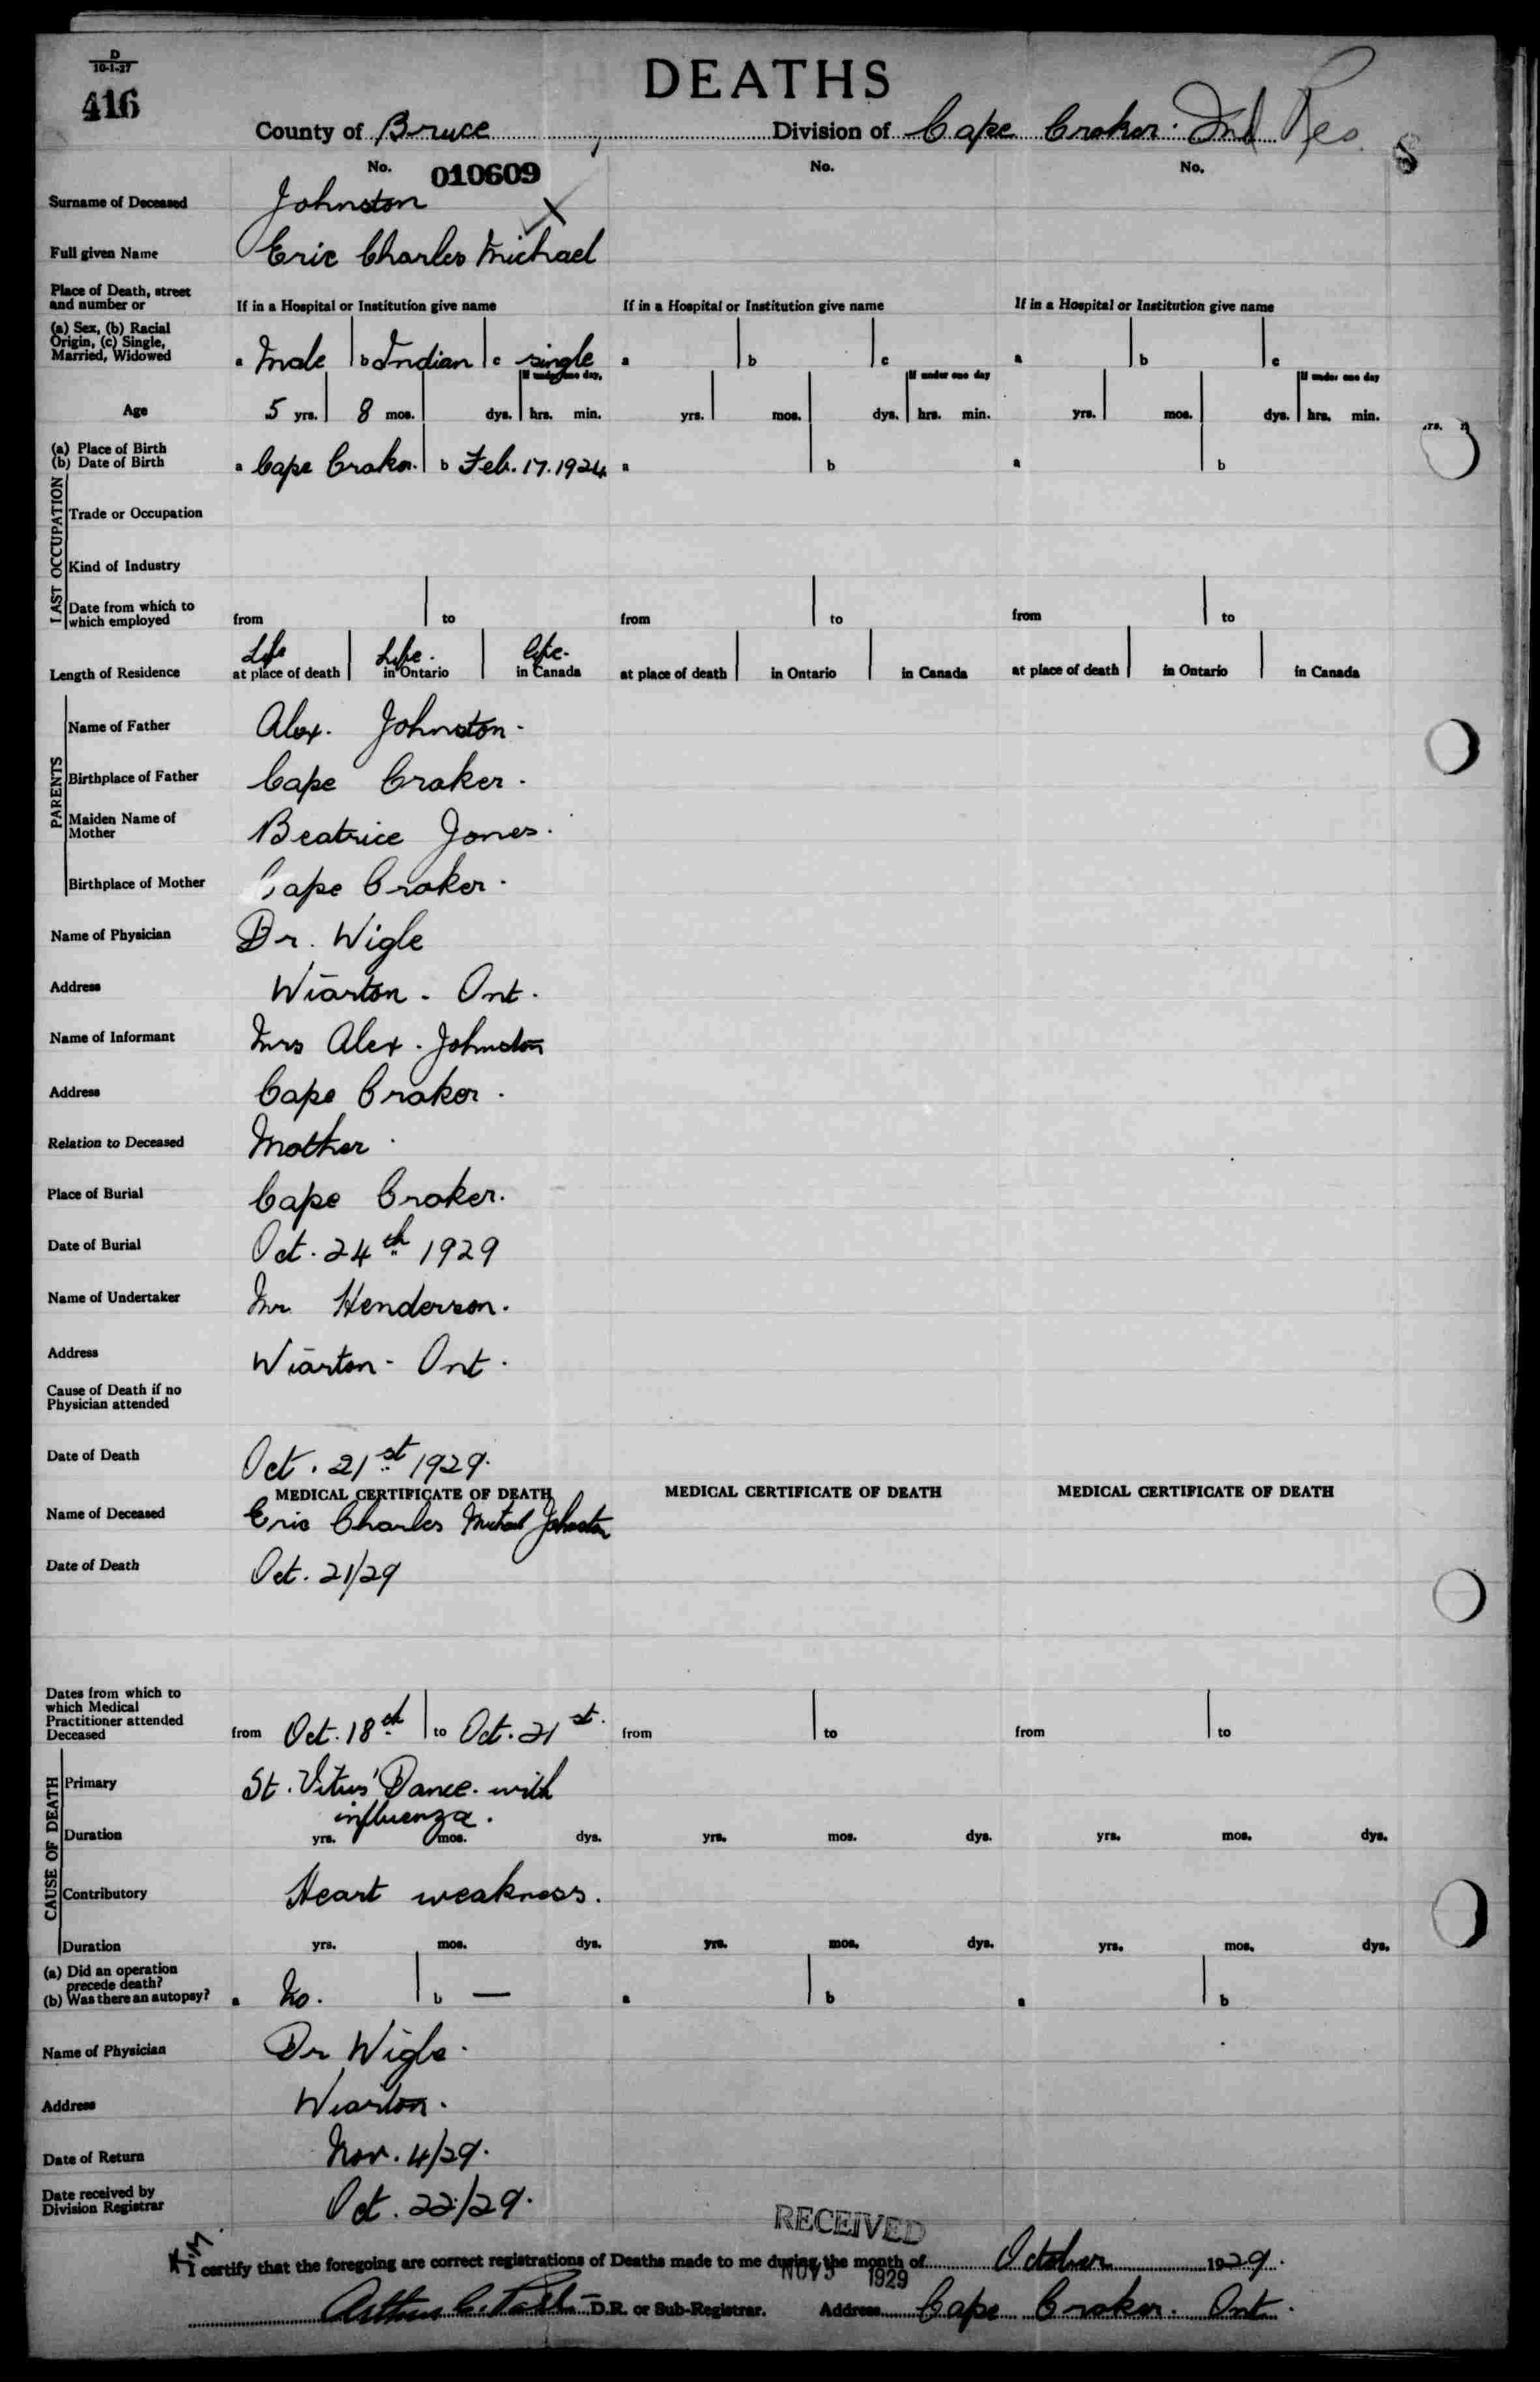 D
10-1-27
416
DEATHS
County of Bruce Division of Cape Croker. Ind Res.
No. 010609 No. No.
Surname of Deceased Johnston
Full given Name Eric Charles Michael
Place of Death, street
and number or If in a Hospital or Institution give name If in a Hospital or Institution give name If in a Hospital or Institution give name
(a) Sex, (b) Racial
Origin, (c) Single,
Married, Widowed a Male b Indian c single a b c a b c
If under one day. If under one day If under one day
Age 5 yrs. 8 mos. dys. hrs. min. yrs. mos. dys. hrs. min. yrs. mos. dys. hrs. min.
(a) Place of Birth
(b) Date of Birth a Cape Croker. b Feb. 17. 1924 a b a b
LAST OCCUPATION
Trade or Occupation
Kind of Industry
Date from which to
which employed from to from to from to
Life Life. Life.
Length of Residence at place of death in Ontario in Canada at place of death in Ontario in Canada at place of death in Ontario in Canada
PARENTS
Name of Father Alex. Johnston.
Birthplace of Father Cape Croker.
Maiden Name of
Mother Beatrice Jones.
Birthplace of Mother Cape Croker.
Name of Physician Dr. Wigle
Address Wiarton. Ont.
Name of Informant Mrs Alex. Johnston
Address Cape Croker.
Relation to Deceased Mother.
Place of Burial Cape Croker.
Date of Burial Oct. 24th 1929
Name of Undertaker Mr Henderson.
Address Wiarton - Ont.
Cause of Death if no
Physician attended
Date of Death Oct. 21st 1929.
MEDICAL CERTIFICATE OF DEATH MEDICAL CERTIFICATE OF DEATH MEDICAL CERTIFICATE OF DEATH
Name of Deceased Eric Charles Michael Johnston
Date of Death Oct. 21/29
Dates from which to
which Medical
Practitioner attended
Deceased from Oct. 18th to Oct. 21st. from to from to
CAUSE OF DEATH
Primary St. Vitus' Dance. with
influenza.
Duration yrs. mos. dys. yrs. mos. dys. yrs. mos. dys.
Contributory Heart weakness.
Duration yrs. mos. dys. yrs. mos. dys. yrs. mos. dys.
(a) Did an operation
precede death?
(b) Was there an autopsy? a No. b — a b a b
Name of Physician Dr Wigle.
Address Wiarton.
Date of Return Nov. 4/29.
Date received by
Division Registrar Oct. 22/29.
RECEIVED
I certify that the foregoing are correct registrations of Deaths made to me during the month of October 1929.
NOV 5 1929
Arthur D.R. or Sub-Registrar. Address Cape Croker. Ont.